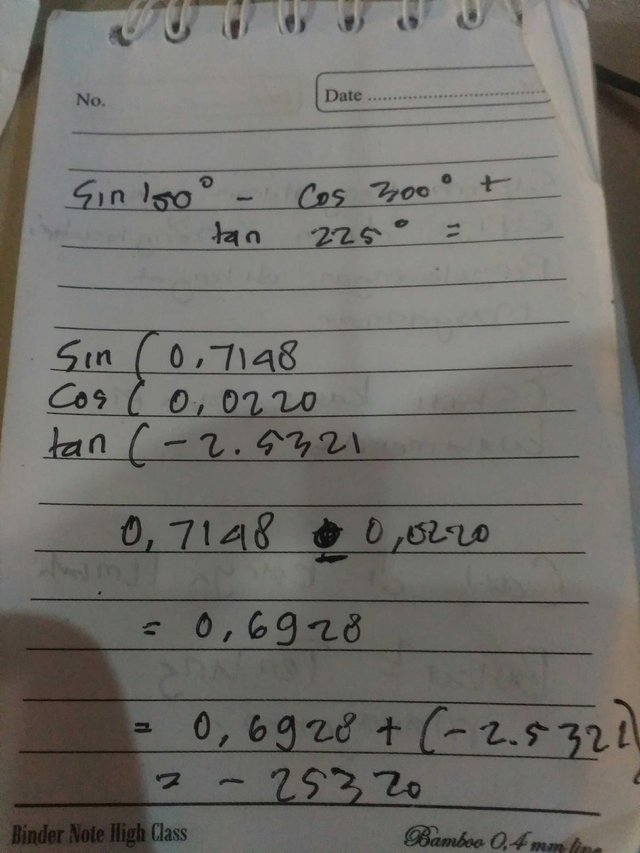 No.
Date
Sin 150° - Cos 300° +
tan 225° =
Sin ( 0,7148
Cos ( 0,0220
tan ( -2.5321
0,7148 - 0,0220
= 0,6928
= 0,6928 + (-2.5321)
= - 25320
Binder Note High Class
Bamboo 0,4 mm line